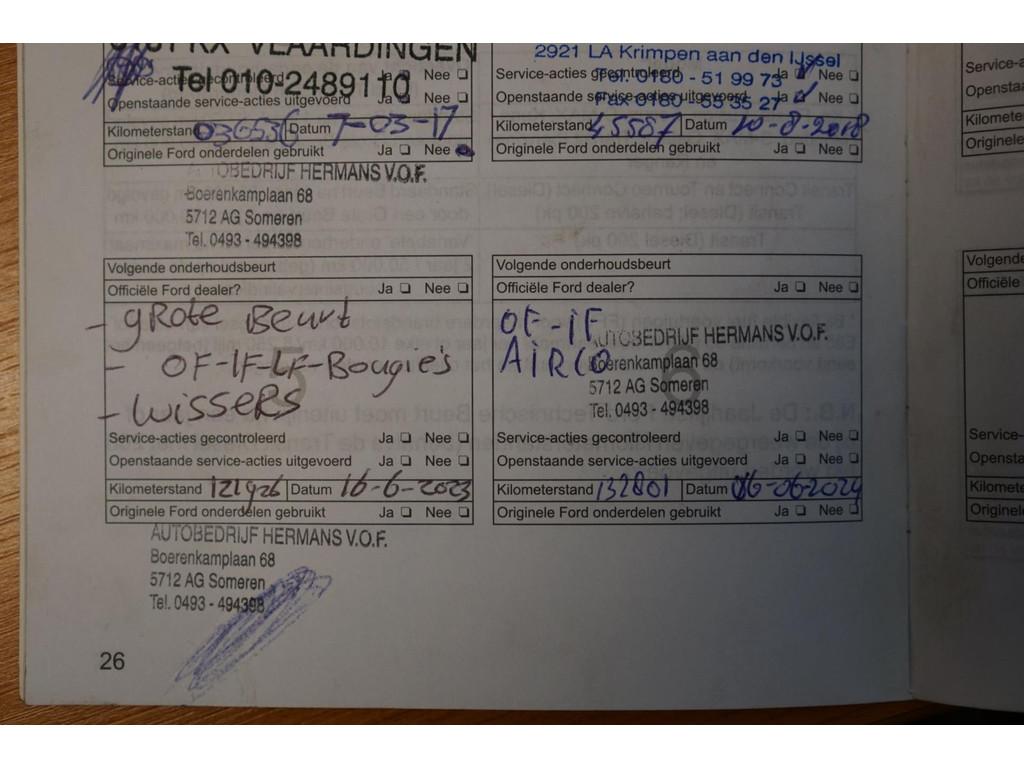 VLAARDINGEN
Service-acties gecontroleerd Ja ❑ Nee ❑
Tel 010-2489110
Openstaande service-acties uitgevoerd Ja ❑ Nee ❑
Kilometerstand 036536 Datum 7-03-17
Originele Ford onderdelen gebruikt Ja ❑ Nee ❑
2921 LA Krimpen aan den IJssel
Service-acties gecontroleerd Ja ❑ Nee ❑
Tel. 0180 - 51 99 73
Openstaande service-acties uitgevoerd Ja ❑ Nee ❑
Fax 0180 - 55 35 27
Kilometerstand 45587 Datum 10-8-2018
Originele Ford onderdelen gebruikt Ja ❑ Nee ❑
AUTOBEDRIJF HERMANS V.O.F.
Boerenkamplaan 68
5712 AG Someren
Tel. 0493 - 494398
Volgende onderhoudsbeurt
Officiële Ford dealer? Ja ❑ Nee ❑
- GROTE Beurt
- OF-IF-LF-Bougies
- WISSERS
5
Service-acties gecontroleerd Ja ❑ Nee ❑
Openstaande service-acties uitgevoerd Ja ❑ Nee ❑
Kilometerstand 121926 Datum 16-6-2023
Originele Ford onderdelen gebruikt Ja ❑ Nee ❑
AUTOBEDRIJF HERMANS V.O.F.
Boerenkamplaan 68
5712 AG Someren
Tel. 0493 - 494398
Volgende onderhoudsbeurt
Officiële Ford dealer? Ja ❑ Nee ❑
OF-IF
AIRCO
6
AUTOBEDRIJF HERMANS V.O.F.
Boerenkamplaan 68
5712 AG Someren
Tel. 0493 - 494398
Service-acties gecontroleerd Ja ❑ Nee ❑
Openstaande service-acties uitgevoerd Ja ❑ Nee ❑
Kilometerstand 132801 Datum 06-06-2024
Originele Ford onderdelen gebruikt Ja ❑ Nee ❑
26